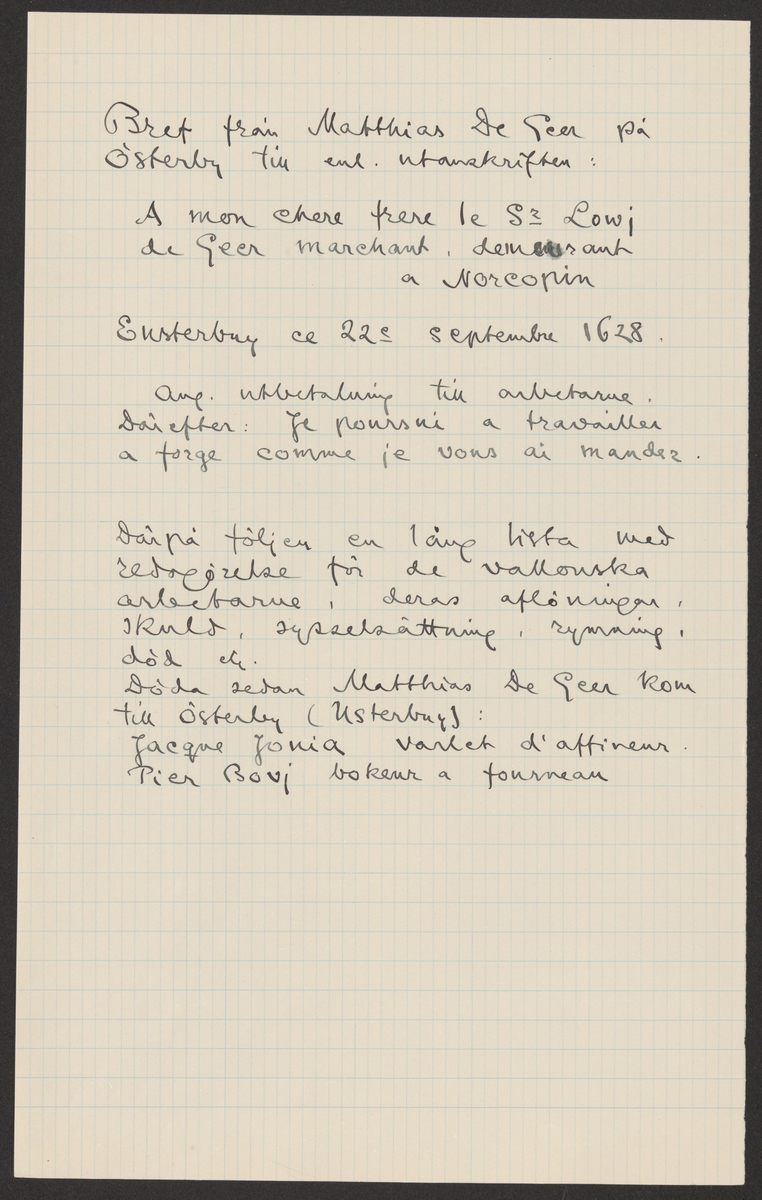 Bref från Matthias De Geer på
Österby till enl. utanskriften:
A mon chere frere le Sr Lowj
de Geer marchant, demeurant
a Norcopin
Eusterbuy ce 22e septembre 1628.
Ang. utbetalning till arbetarne.
Därefter: Je poursui a travailler
a forge comme je vous ai mandez.
Därpå följer en lång lista med
redogörelse för de vallonska
arbetarne, deras aflöningar,
skuld, sysselsättning, rymning,
död etc.
Döda sedan Matthias De Geer kom
till Österby (Usterbuy):
Jacque Jonia varlet d'affineur.
Pier Bovj bokeur a fourneau